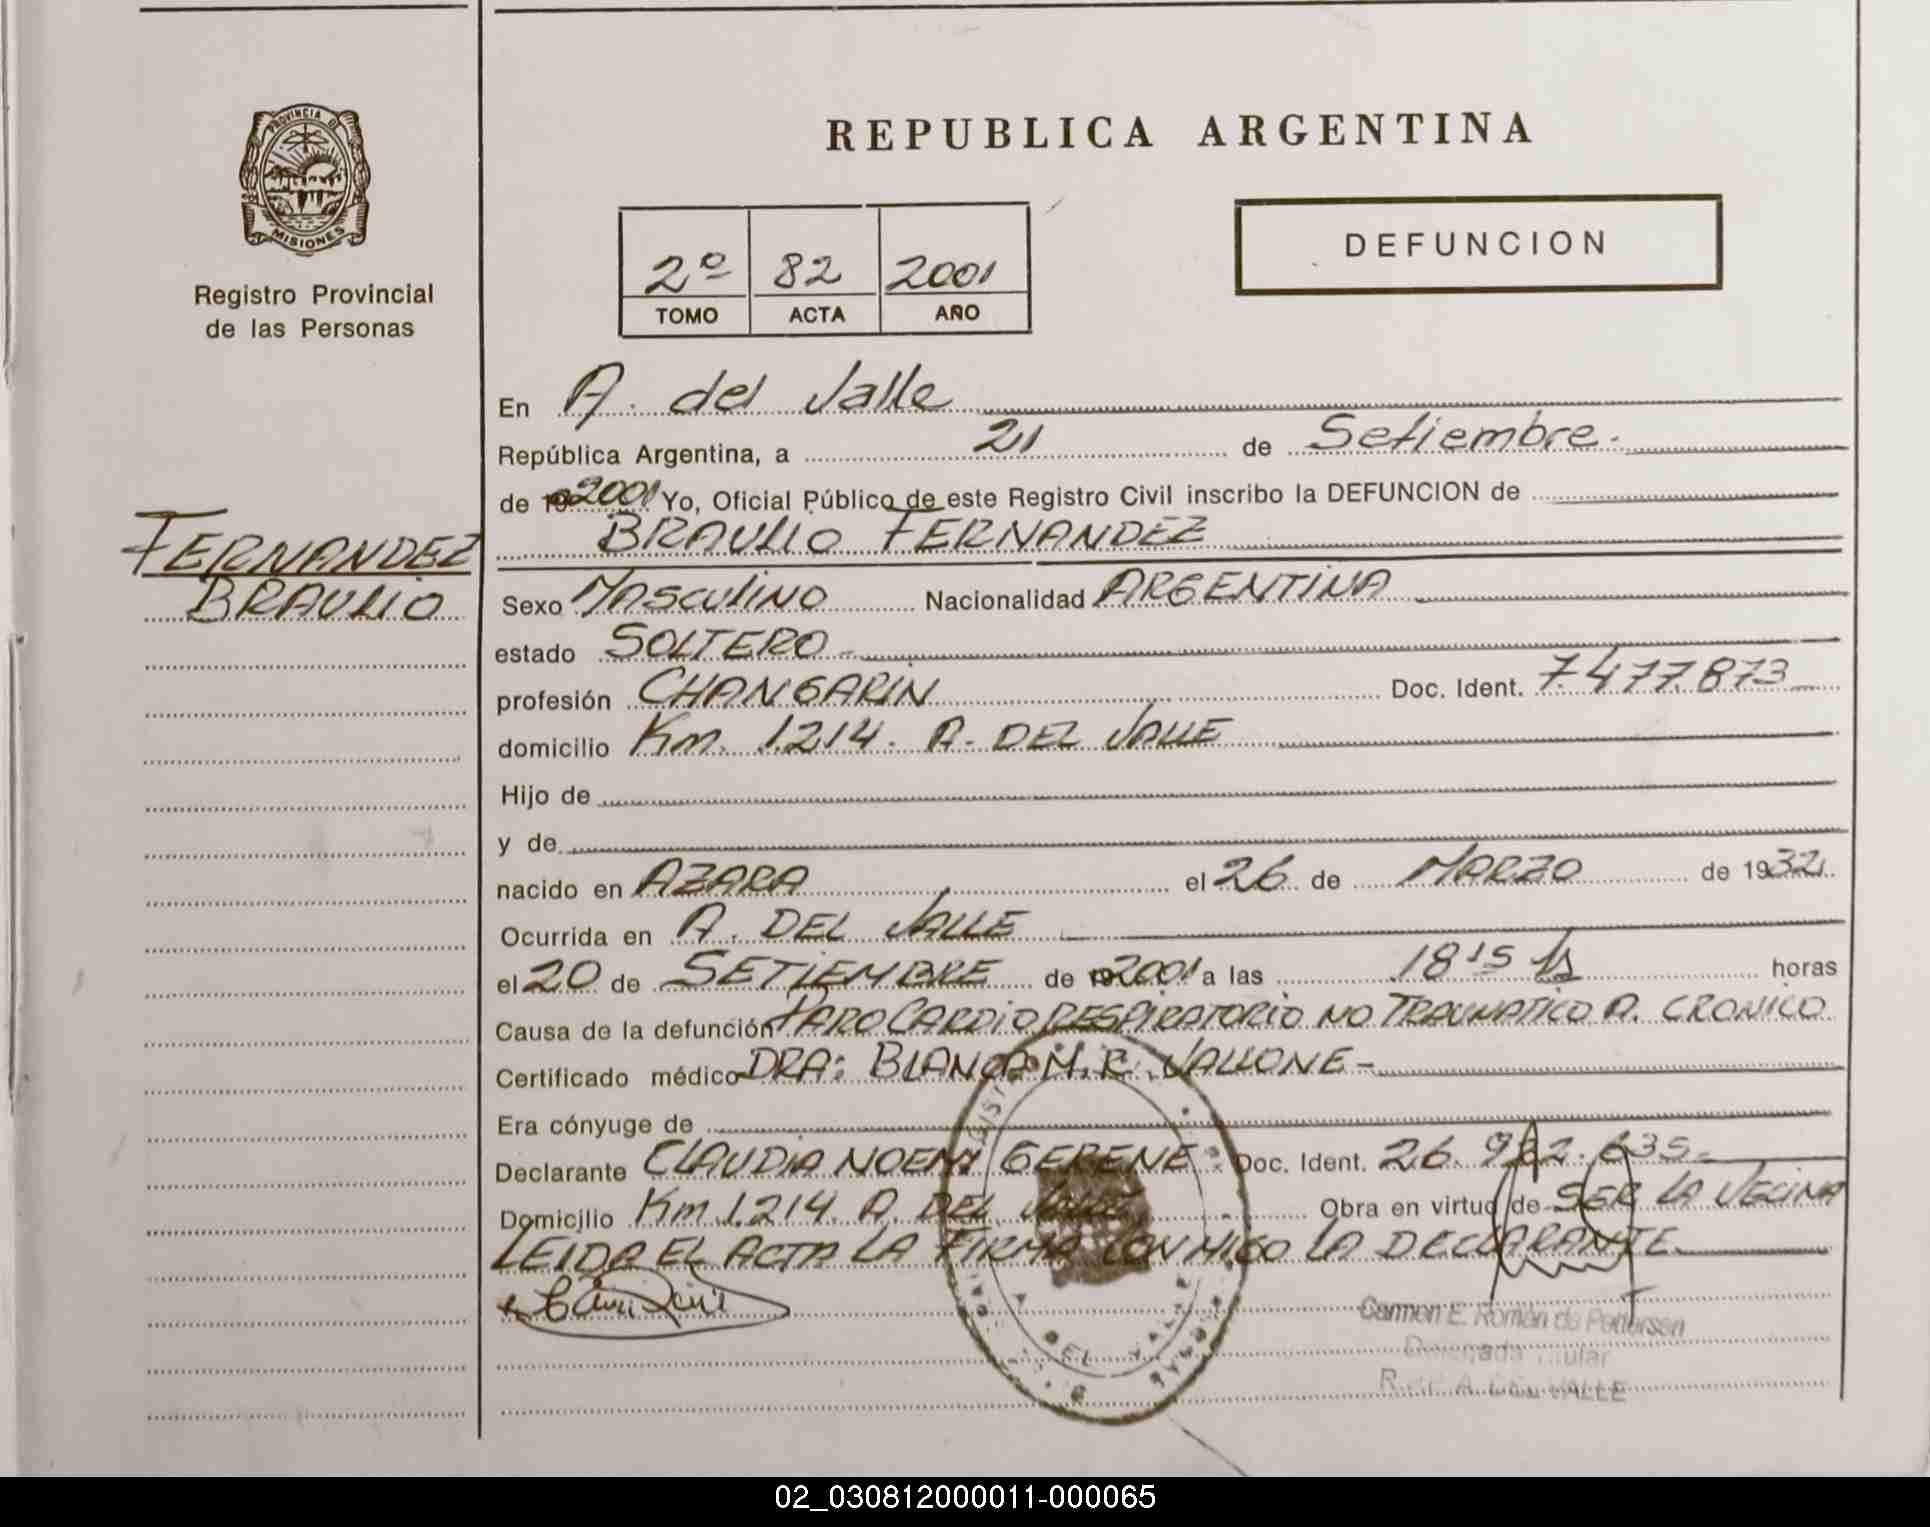 PROVINCIA D
MISIONES
Registro Provincial
de las Personas
FERNANDEZ
BRAULIO
REPUBLICA ARGENTINA
2º 82 2001
TOMO ACTA AÑO
DEFUNCION
En A. del Valle
República Argentina, a 21 de Setiembre.
de 2001 Yo, Oficial Público de este Registro Civil inscribo la DEFUNCION de
BRAULIO FERNANDEZ
Sexo MASCULINO Nacionalidad ARGENTINA
estado SOLTERO
profesión CHANGARIN Doc. Ident. 7.477.873
domicilio Km. 1214. A. DEL VALLE
Hijo de
y de
nacido en AZARA el 26 de MARZO de 1932
Ocurrida en A. DEL VALLE
el 20 de SETIEMBRE de 2001 a las 18 15 hs horas
Causa de la defunción PARO CARDIO RESPIRATORIO NO TRAUMATICO A. CRONICO
Certificado médico DRA: BLANCA M. R. VALLONE -
Era cónyuge de
Declarante CLAUDIA NOEMI GERENE. Doc. Ident. 26. 635-
Domicilio Km 1214. A. DEL VALLE Obra en virtud de SER LA VECINA
LEIDA EL ACTA LA FIRMA CONMIGO LA DECLARANTE
Carmen E. Román de Pedersen
Delegada Titular
A. DEL VALLE
DEL VALLE
02_030812000011-000065